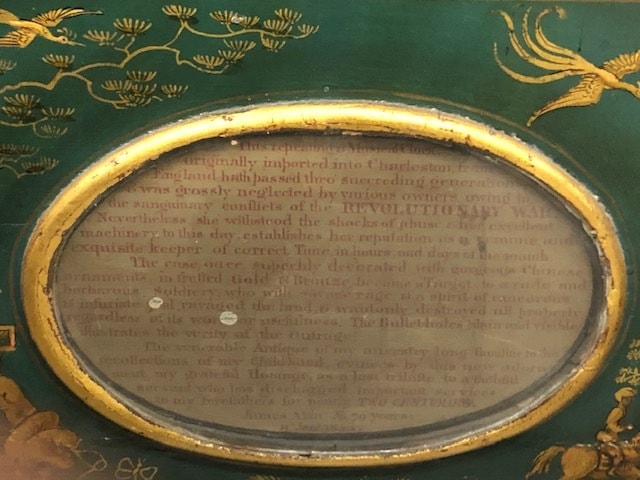 This repeating & Musical Clock
originally imported into Charleston, fr
England, hath passed thro' succeeding generation
was grossly neglected by various owners owing to
the sanguinary conflicts of the REVOLUTIONARY WAR
Nevertheless she withstood the shocks of abuse & her excellent
machinery to this day establishes her reputation as a genuine and
exquisite keeper of correct Time, in hours, and days of the month
The case once superbly decorated with gorgeous Chinese
ornaments in fretted Gold & Bronze became a Target to rude and
barbarous Soldiers who with savage rage & a spirit of rancorous
infuriate ravaged the land, & wantonly destroyed all property
regardless of its worth or usefulness. The Bullet holes plain and visible
illustrate the verity of the outrage
The venerable Antique of my ancestry long familiar to the
recollections of my Childhood, evinces by this new adorn
ment my grateful feelings, as a last tribute to a faithful
servant who has discharged constant services
to my forefathers for near TWO CENTURIES
70 years